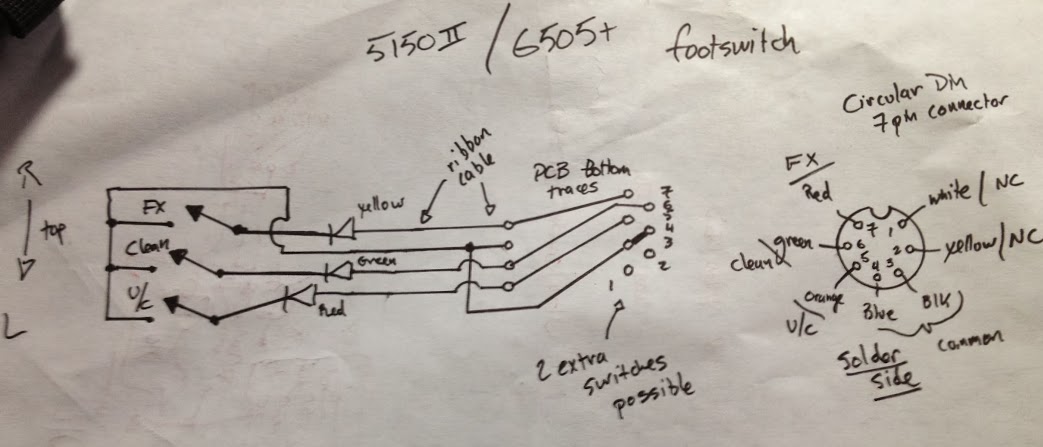 5150II / 6505+ footswitch
Circular DIN
7 pin connector
R
top
L
FX
Clean
U/C
yellow
Green
Red
ribbon
cable
PCB Bottom
traces
7
6
5
4
3
2
1
2 extra
switches
possible
FX
Red
white / NC
yellow / NC
green
clean
orange
U/C
Blue
Blk
common
7
1
6
2
5
4
3
Solder
side